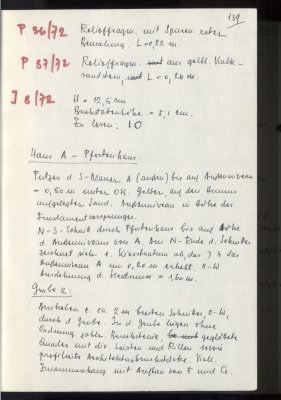 139
P 36/72 Relieffragm. mit Spuren roter
Bemalung. L = 0,22 m.
P 37/72 Relieffragm. aus gelb. Kalk-
sandstein, L = 0,20 m.
J 8/72 H = 12,5 cm
Buchstabenhöhe = 5,1 cm.
Zu lesen: IO
Haus A - Pfostenhaus:
Putzen d. S-Mauer A (außen) bis auf Außenniveau
= 0,50 m unter OK. Gelber, auf den Humus
aufgelegter Sand. Außenniveau in Höhe des
Fundamentvorsprunges.
N-S-Schnitt durch Pfostenhaus bis auf Höhe
d. Außenniveaus von A. Am N-Ende d. Schnittes
zeichnet sich e. ab, das d.
Außenniveau A um 0,20 m erhöht. O-W
Ausdehnung d. = 1,60 m.
Grube 2:
Ausheben e. ca. 2 m breiten Schnittes, O-W,
durch d. Grube. In d. Grube liegen ohne
Ordnung zahlr. Bruchsteine, geglättete
Quader mit div. Leisten und Rillen sowie
profilierte Architekturbruchstücke. Viell.
Zusammenhang mit Aufbau von E und C.